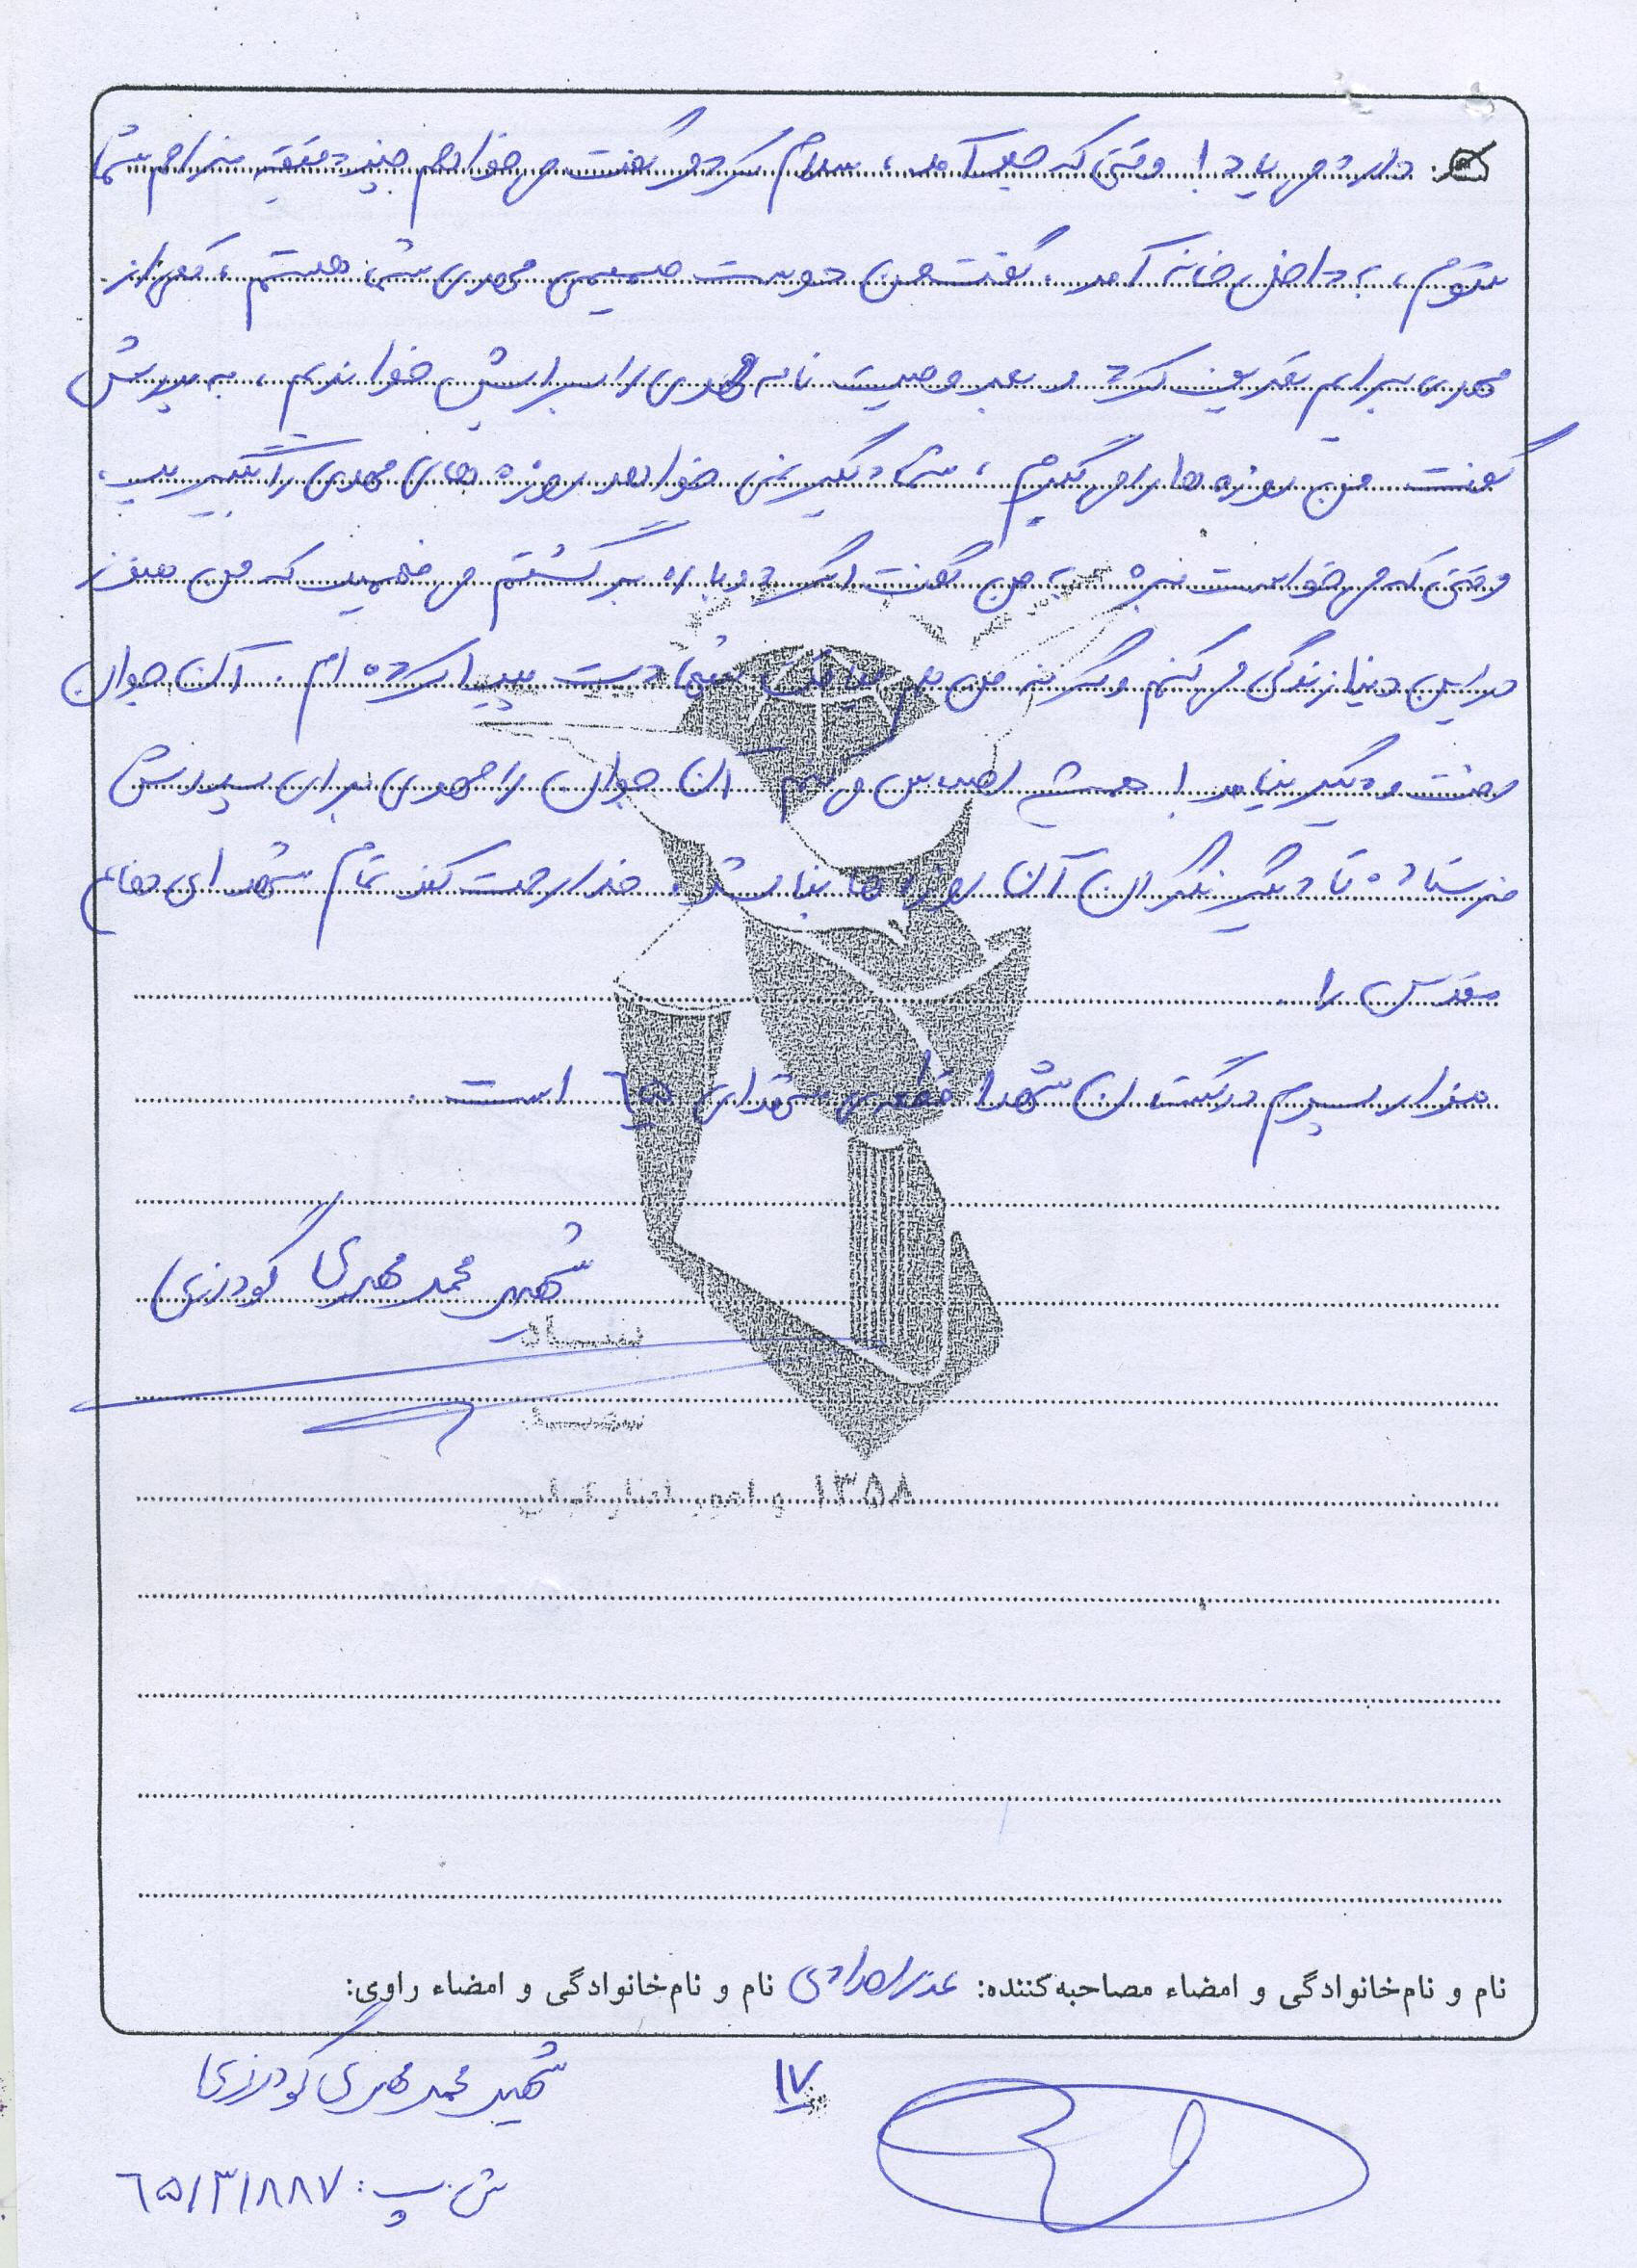 دارد می یاد! وقتی که جلو آمد، سلام کرد و گفت می خواهم چند دقیقه مزاحم شما
شوم، به داخل خانه آمد، گفت من دوست صمیمی مهدی شما هستم، کمی از
مهدی برایم تعریف کرد و بعد وصیت نامه مهدی را برایش خواندیم، به پدرش
گفت من روزه ها را می گیرم، شما دیگر نمی خواهد روزه های مهدی را بگیرید،
وقتی که می خواست برود به من گفت اگر دوباره برگشتم می فهمید که من هنوز
در این دنیا زندگی می کنم وگرنه من هم لیاقت شهادت پیدا کرده ام. آن جوان
رفت و دیگر نیامد! همیشه احساس می کنم آن جوان را مهدی برای پدرش
فرستاده تا دیگر نگران آن روزه ها نباشد. خدا رحمت کند تمام شهدای دفاع
مقدس را
مزار پسرم در گلستان شهدا قطعه ی شهدای است.
شهید محمد مهدی گودرزی
بنیاد
شهید
۱۳۵۸ و امور ایثارگران
نام و نام‌خانوادگی و امضاء مصاحبه‌کننده: عذرا مرادی نام و نام‌خانوادگی و امضاء راوی:
شهید محمد مهدی گودرزی
۱۷
ش پ: ۶۵/۳/۸۸۷